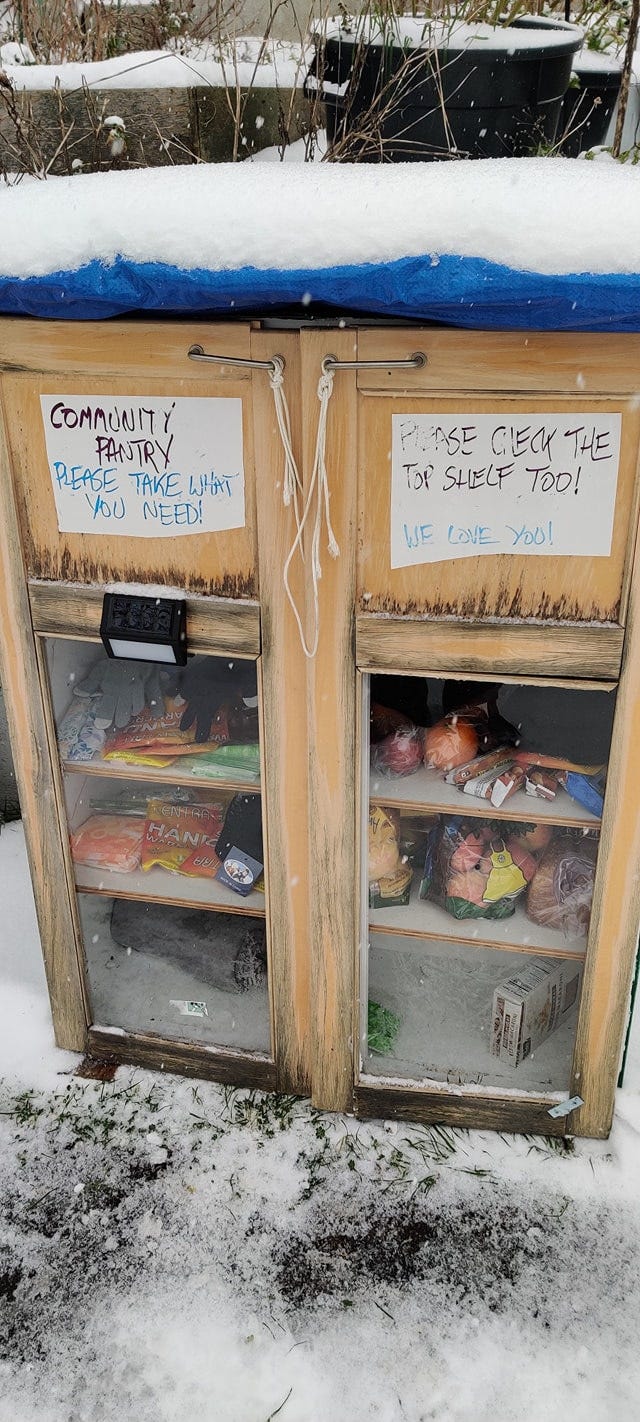 COMMUNITY
PANTRY
PLEASE TAKE WHAT
YOU NEED!
PLEASE CHECK THE
TOP SHELF TOO!
WE LOVE YOU!
HAND